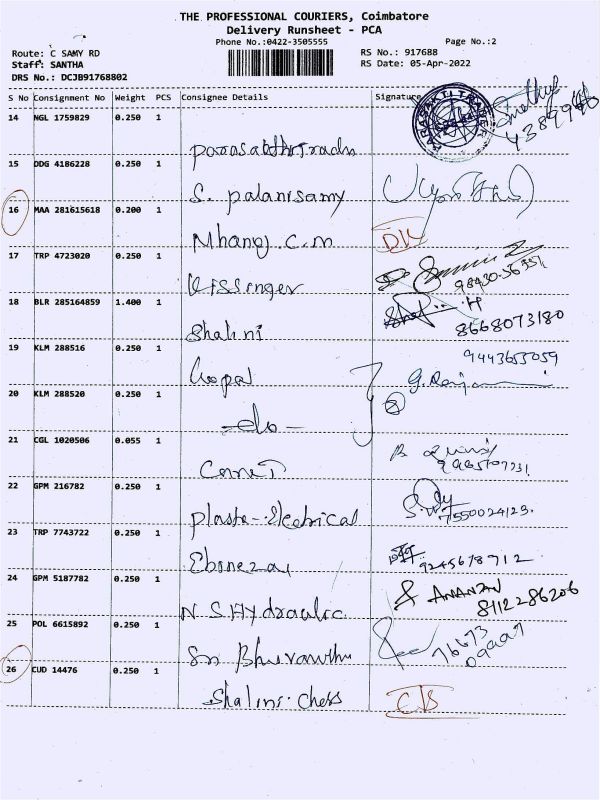 THE PROFESSIONAL COURIERS, Coimbatore
Delivery Runsheet - PCA
Phone No.:0422-3505555 Page No.:2
Route: C SAMY RD RS No.: 917688
Staff: SANTHA RS Date: 05-Apr-2022
DRS No.: DCJB91768802
S No Consignment No Weight PCS Consignee Details Signature
14 NGL 1759829 0.250 1
4389946
15 DDG 4186228 0.250 1
S. palanisamy
16 MAA 281615618 0.200 1
Mhanoj.C.M
17 TRP 4723020 0.250 1
Kissinger
98430-36351
18 BLR 285164859 1.400 1
Shalini 8668073180
19 KLM 288516 0.250 1 9443653059
Gopal
20 KLM 288520 0.250 1
-do- 2
21 CGL 1020506 0.055 1
22 GPM 216782 0.250 1
Plasta-Electrical 7550024123.
23 TRP 7743722 0.250 1
Ebinezar 9245678912
24 GPM 5187782 0.250 1
N S Hydraulic ANANDAN
8112286206
25 POL 6615892 0.250 1
76673
09007
26 CUD 14476 0.250 1
Shalini.Chess